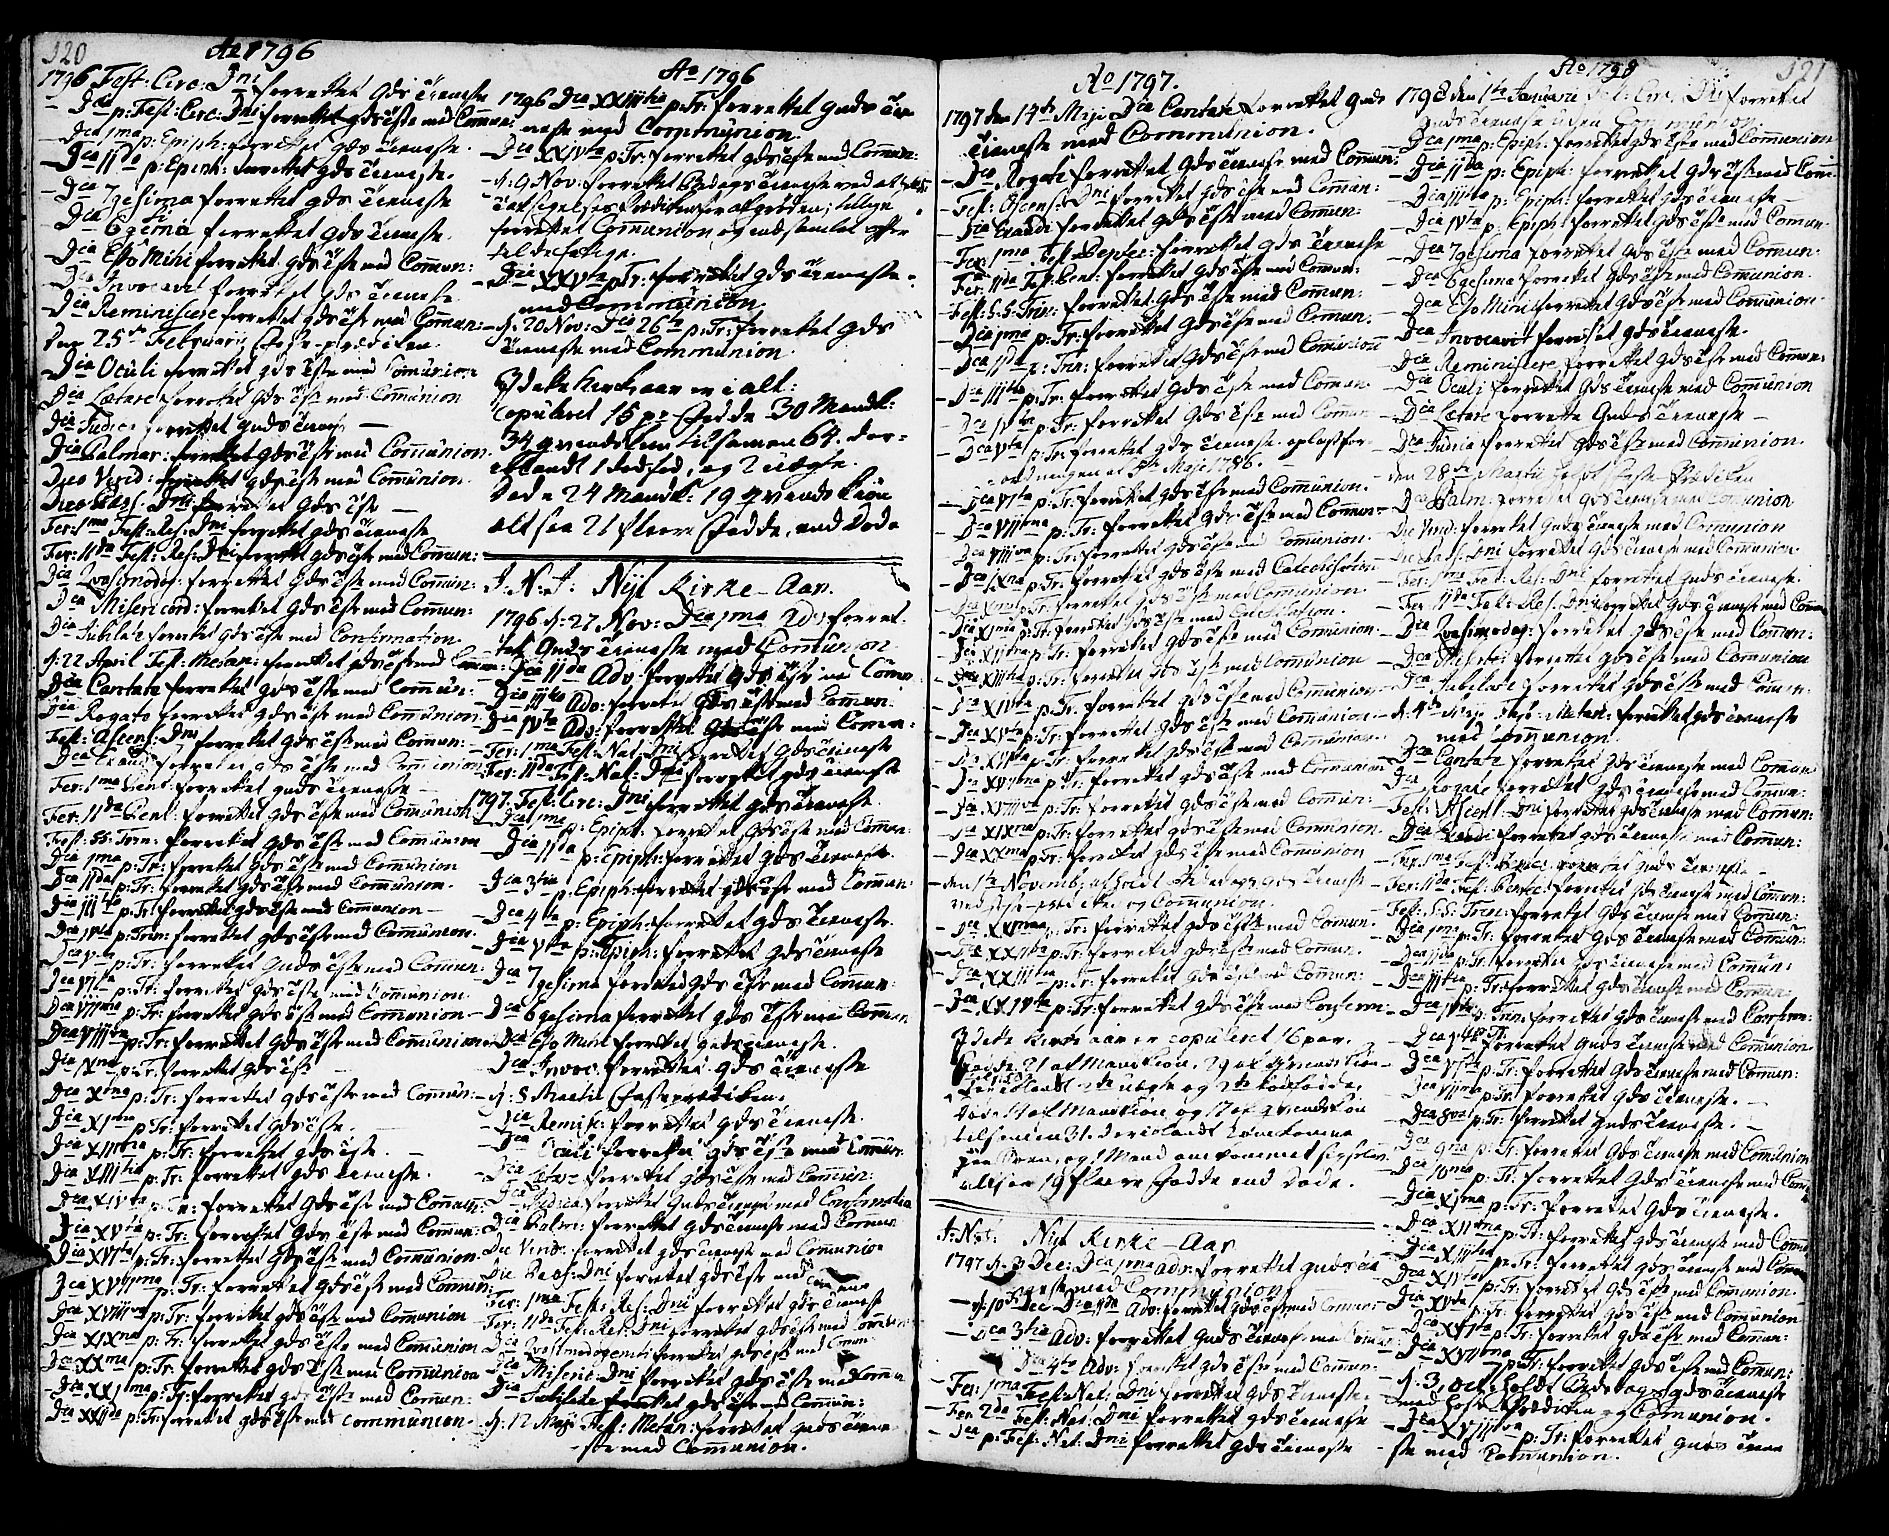 320
Ao 1796
1796 Fest: Circ: Dni forrettet gds tieneste
Dca p: Fest: Circ: Dni forrettet gds tste med Comun:
Dca 1ma p: Epiph: forrettet gds tieneste.
Dca 11da p: Epiph: forrettet gds tieneste.
Dca 7gesima forrettet gds tieneste
Dca 6gesima forrettet gds tieneste.
Dca Esto Mihi forrettet gds tste med Comun:
Dca Invocavit forrettet gds tieneste
Dca Reminiscere forrettet gds tste med Comun:
den 25de Februarii Faste-prædiken.
Dca Oculi forrettet gds tste med Comunion
Dca Lætare forrettet gds tste med Comunion
Dca Judica forrettet guds tieneste
Dca Palmar: forrettet gds tste med Comunion.
Dies Virid: forrettet gds tste med Comunion.
Dies Pass: Dni forrettet gds tste
Fer: 1ma Fest: Res: Dni forrettet gds tieneste
Fer: 11da Fest: Res: Dni forrettet gds tste med Comun:
Dca Quasimodog: forrettet gds tste med Comun:
Dca Misericord: forrettet gds tste med Comun:
Dca Jubilate forrettet gds tste med Confirmation
d: 22 April Fest: Metan: forrettet gds tste med Comun:
Dca Cantate forrettet gds tste med Comun:
Dca Rogate forrettet gds tste med Comunion
Fest: Ascens: Dni forrettet gds tste med Comun:
Dca Exaudi forrettet gds tste med Comunion
Fer: 1ma Pent: forrettet guds tieneste
Fer: 11da Pent: forrettet gds tste med Comunion
Fest: SS: Trin: forrettet gds tste med Comunion
Dca 1ma p: Tr: forrettet gds tste med Comunion
Dca 11da p: Tr: forrettet gds tste med Comunion.
Dca 111tia p: Tr: forrettet gds tste med Comunion
Dca 1Vta p: Trin: forrettet gds tste med Comunion.
Dca Vta p: Tr: forrettet guds tste med Comun:
Dca V1ta p: Tr: forrettet gds tste med Comunion
Dca V11ma p: Tr: forrettet gds tste med Comunion
Dca V111va p: Tr: forrettet gds tste med Comunion
Dca 1Xna p: Tr: forrettet gds tste
Dca Xma p: Tr: forrettet gds tste med Comun:
Dca X1ma p: Tr: forrettet gds tste.
Dca X11ma p: Tr: forrettet gds tste.
Dca X111tia p: Tr: forrettet gds tieneste.
Dca X1Vta p: Tr: forrettet gds tste med Comun:
Dca XVta p: Tr: forrettet gds tste med Comun:
Dca XV1ta p: Tr: forrettet gds tste med Comunion
Dca XV11ma p: Tr: forrettet gds tste med Comun:
Dca XV111va p: Tr: forrettet gds tste med Comunion
Dca X1Xna p: Tr: forrettet gds tste med Comunion
Dca XXma p: Tr: forrettet gds tste med Comunion
Dca XX1ma p: Tr: forrettet gds tste med Comun:
Dca XX11da p: Tr: forrettet gds tste med communion.
Ao 1796
1796 Dca XX111tia p: Tr: forrettet guds tie
neste med Communion.
Dca XX1Vta p: Tr: forrettet gds tste med Comun:
d: 9 Nov: forrettet Bededags tieneste med
forrettet Comunion og
Dca XXVta p: Tr: forrettet gds tieneste
med Communion
d: 20 Nov: Dca 26te p: Tr: forrettet gds
tieneste med Communion.
I dette kirkeaar er i alt:
copuleret 15 par Fødde 30 Mandk:
34 qvindekiøn tilsamen 64. der-
iblandt 1 dødfød, og 2 uægte.
Døde 24 Mandk: 19 qvindekiøn
altsaa 21 fleere Fødde, end Døde
J. N. J. Nyt Kirke-Aar.
1796 d: 27 Nov: Dca 1ma Adv: forret-
tet Guds tieneste med Comunion
Dca 11da Adv: forrettet gds tste med Comun
Dca 111tia Adv: forrettet gds tste med Comun:
Dca 1Vta Adv: forrettet gds tste med Comun:
Fer: 1ma Fest: Nat: Dni forrettet gds tieneste
Fer: 11da Fest: Nat: Dni forrettet gds tieneste
1797. Fest: Circ: Dni forrettet gds tieneste.
Dca 1ma p: Epiph: forrettet gds tste med Comun:
Dca 11da p: Epiph: forrettet gds tieneste.
Dca 3tia p: Epiph: forrettet gds tste med Comun:
Dca 4ta p: Epiph: forrettet gds tieneste
Dca Vta p: Epiph: forrettet gds tieneste
Dca 7gesima forrettet gds tste med Comun:
Dca 6gesima forrettet gds tste med Comun
Dca Esto Mihi forrettet guds tieneste.
Dca Invoc: forrettet gds tieneste
d: 8 Martii Fasteprædiken.
Dca Remisc: forrettet gds tieneste.
Dca Oculi forrettet gds tste med Comun:
Dca Lætare forrettet gds tste med Comun:
Dca Judica forrettet Guds tieneste med Confirmation
Dca Palm: forrettet gds tieneste med Comun
Die Virid: forrettet gds tieneste med Comunion
Die Pass: Dni forrettet gds tste med Comunion
Fer: 1ma Fest: Res: Dni forrettet gds tieneste
Fer: 11da Fest: Res: Dni forrettet gds tste med Comun:
Dca Quasimodogeniti forrettet gds tste med Comun:
Dca Miseric: Dni forrettet gds tste med Comun
Dca Jubilate forrettet gds tste med Comun:
d: 12 Maji Fest: Metan: forrettet guds tiene-
ste med Comunion.
Ao 1797.
1797 den 14de Maji Dca Cantate forrettet guds
tieneste med Communion.
Dca Rogate forrettet gds tieneste med Comun:
Fest: Ascens: Dni forrettet gds tste med Comun:
Dca Exaudi forrettet gds tste med Comun:
Fer: 1ma Fest: Pentec: forrettet gds tieneste
Fer: 11da Fest: Pent: forrettet gds tste med Comun:
Fest: S.S. Trin: forrettet gds tste med Comun:
Dca 1ma p: Tr: forrettet gds tste med Comun.
Dca 11da p: Trin: forrettet gds tste med Comunion
Dca 111tia p: Tr: forrettet gds tste med Comun
Dca 1Vta p: Tr: forrettet gds tste med Comun
Dca Vta p: Tr: forrettet gds tieneste. oplæst for-
ordningen af 8de Maji 1786.
Dca V1ta p: Tr: forrettet gds tste med Comunion.
Dca V11ma p: Tr: forrettet gds tste med Comun
Dca V111va p: Tr: forrettet gds tste med Comunion
Dca 1Xna p: Tr: forrettet gds tste med Catechisation
Dca Xma p: Tr: forrettet gds tste med Comunion
Dca X1ma p: Tr: forrettet gds tste med Catechisation.
Dca X11ma p: Tr: forrettet gds tste med Comunion
Dca X111tia p: Tr: forrettet gds tste med Comunion
Dca X1Vta p: Tr: forrettet gds tste med Comunion
Dca XVta p: Tr: forrettet gds tste med Comunion
Dca XV1ta p: Tr: forrettet gds tste med Comunion
Dca XV11ma p: Tr: forrettet gds tste med Comunion
Dca XV111va p: Tr: forrettet gds tste med Comun:
Dca X1Xna p: Tr: forrettet gds tste med Comunion
Dca XXma p: Tr: forrettet gds tste med Comunion
den 1te Novemb: afholdt Bededags gds tieneste
med prædiken og Comunion.
Dca XX1ma p: Tr: forrettet gds tste med Comun.
Dca XX11da p: Tr: forrettet gds tste med Comun.
Dca XX111tia p: Tr: forrettet gds tste med Comun:
Dca XX1Vta p: Tr: forrettet gds tste med Conferm:
I dette Kirke aar er copuleret 16 par.
Fødde 21 af Mandkiøn, 29 af Qvindekiøn
deriblandt 2de uægte og 2de dødfødde,
Døde 14 af Mandkiøn og 17 af qvindekiøn
tilsamen 31. deriblandt
og 1 Mand omkommet
altsaa 19 fleere Fødde end Døde.
J. N. J. Nyt Kirke-Aar
1797 d: 3 Dec: Dca 1ma Adv: forrettet guds tie
neste med Communion
d: 10de Dec: Dca 11da Adv: forrettet gds tste med Comun
Dca 3tia Adv: forrettet guds tieneste med Comun
Dca 4ta Adv: forrettet gds tste med Comun.
Fer: 1ma Fest: Nat: Dni forrettet gds tieneste.
Fer: 2da Fest: Nat: Dni forrettet gds tieneste
Dca p: Fest: Nat: Dni forrettet gds tieneste
Ao 1798
321
1798 den 1te Januarii Fest: Circ: Dni forrettet
guds tieneste uden Comunion.
Dca 1ma p: Epiph: forrettet gds tste med Comunion
Dca 11da p: Epiph: forrettet gds tste med Comun
Dca 111tia p: Epiph: forrettet gds tieneste
Dca 1Vta p: Epiph: forrettet gds tste med Comun
Dca 7gesima forrettet gds tste med Comun:
Dca 6gesima forrettet gds tste med Comunion.
Dca Esto Mihi forrettet gds tste med Comunion
Dca Invocavit forrettet gds tieneste.
Dca Reminiscere forrettet gds tste med Comun:
Dca Oculi forrettet gds tieneste med Comunion
Dca Lætare forrettet Guds tieneste
Dca Judica forrettet gds tste med Comunion.
den 28de Martii holdt Faste-Prædiken
Dca Palm: forrettet gds tieneste med Comunion
Die Virid: forrettet Guds tieneste med Comunion
Die Pass: Dni forrettet gds tieneste med Comunion
Fer: 1ma Fest: Res: Dni forrettet guds tieneste.
Fer: 11da Fest: Res: Dni forrettet gds tieneste med Comun
Dca Quasimodog: forrettet gds tste med Comun:
Dca Misericord forrettet gds tste med Comunion
Dca Jubilate forrettet gds tste med Comun:
d: 4de Maji Fest: Metan: forrettet gds tieneste
med Comunion.
Dca Cantate forrettet gds tieneste med Comun
Dca Rogate forrettet gds tieneste med Comun:
Fest: Ascens: Dni forrettet gds tieneste med Comun:
Dca Exaudi forrettet gds tieneste med Comun:
Fer: 1ma Fest: Pentec: forrettet guds tieneste
Fer: 11da Fest: Pentec: forrettet gds tieneste med Comun:
Fest: S.S: Trin: forrettet gds tieneste med Comun:
Dca 1ma p: Tr: forrettet gds tieneste med Comun:
Dca 11da p: Tr: forrettet gds tieneste med Comun:
Dca 111tia p: Tr: forrettet gds tieneste med Comun
Dca 1Vta p: Trin: forrettet gds tieneste med Conferm:
Dca Vta p: Tr: forrettet Guds tieneste med Comunion.
Dca V1ta p: Tr: forrettet gds tieneste med Comun:
Dca V11ma p: Tr: forrettet gds tieneste.
Dca 8va p: Tr: forrettet gds tieneste.
Dca 9na p: Tr: forrettet gds tieneste med Comunion
Dca 10ma p: Tr: forrettet gds tieneste med Comun
Dca X1ma p: Tr: forrettet gds tieneste.
Dca X11ma p: Tr: forrettet gds tieneste med Comun
Dca X111tia p: Tr: forrettet gds tieneste med Comun
Dca X1Vta p: Tr: forrettet gds tste med Comunion
Dca XVta p: Tr: forrettet gds tste med Comunion
Dca XV1ta p: Tr: forrettet gds tste med Comun:
Dca XV11ma p: Tr: forrettet gds tste med Comun:
d: 3 Oct: holdt Bededags gds tieneste
med Prædiken og Comunion.
Dca XV111va p: Tr: forrettet guds tiene
ste med Comunion.